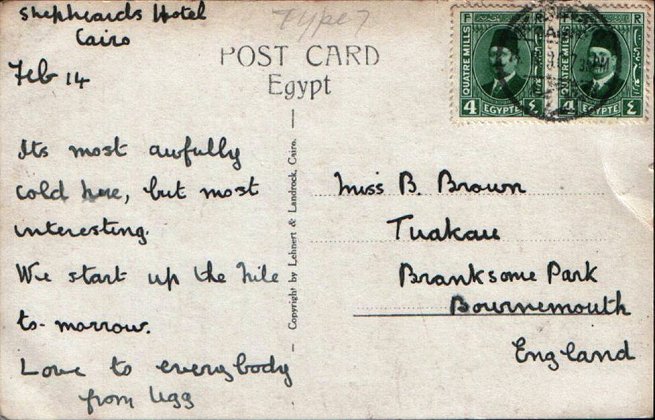 Shepheards Hotel
Cairo
Feb 14
Type 7
POST CARD
Egypt
Its most awfully
cold here, but most
interesting.
We start up the Nile
to-morrow.
Love to everybody
from Ugg
Copyright by Lehnert & Landrock, Cairo.
F R
QUATRE MILLS
4 EGYPTE ٤
F R
QUATRE MILLS
4 EGYPTE ٤
Miss B. Brown
Tuakau
Branksome Park
Bournemouth
England